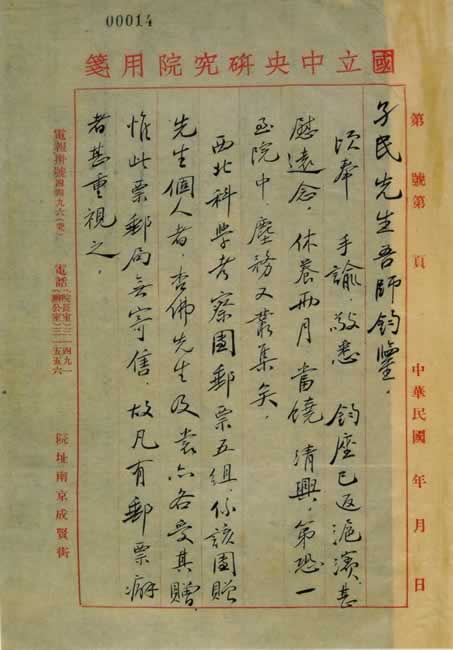 00014
國立中央研究院用箋
第 號第 頁 中華民國 年 月 日
子民先生吾師鈞鑒,
頃奉 手諭,敬悉 鈞座已返滬濱,甚
慰遠念。休養兩月 當饒 清興,第恐一
至院中,塵務又叢集矣。
西北科學考察團郵票五組,係該團贈
先生個人者,杏佛先生及 亦各受其贈,
惟此票郵局無寄信,故凡有郵票癖
者甚重視之。
電報掛號 四九六 電話 院長室 辦公室 院址南京成賢街